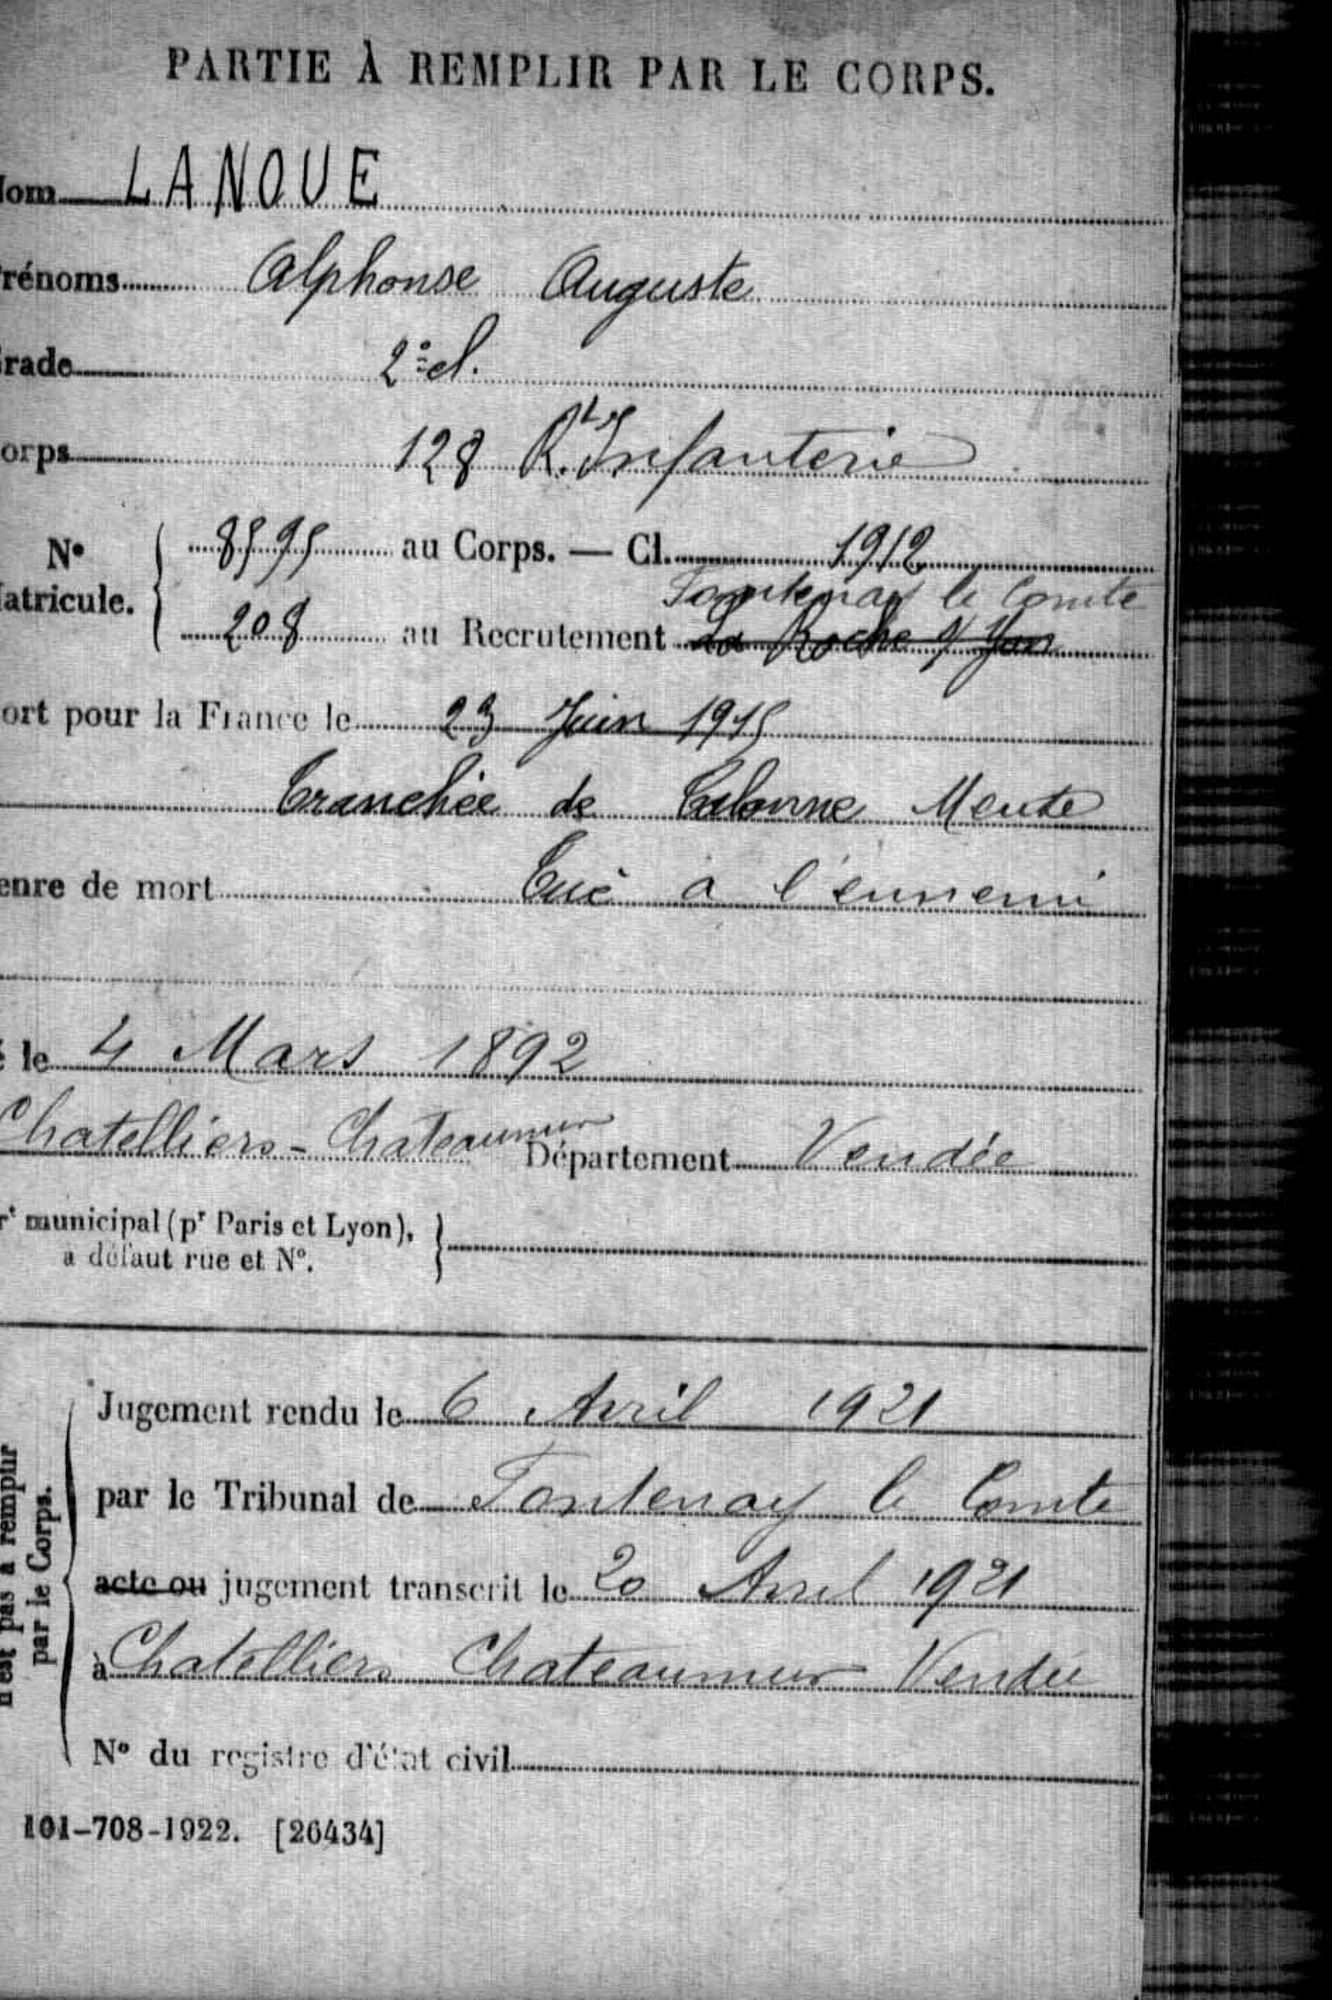 PARTIE À REMPLIR PAR LE CORPS.
Nom LANOUE
Prénoms Alphonse Auguste
Grade 2e cl.
Corps 128 Rt Infanterie
No Matricule. 8595 au Corps. — Cl. 1912
Fontenay le Comte
208 au Recrutement La Roche s/ Yon
Mort pour la France le 23 Juin 1915
Tranchée de Calonne Meuse
Genre de mort Tué a l'ennemi
é le 4 Mars 1892
Chatelliers-Chateaumur Département Vendée
rt municipal (pr Paris et Lyon),
à défaut rue et No.
Jugement rendu le 6 Avril 1921
par le Tribunal de Fontenay le Comte
acte ou jugement transcrit le 20 Avril 1921
à Chatelliers Chateaumur Vendée
No du registre d'état civil
n'est pas à remplir
par le Corps.
101-708-1922. [26434]